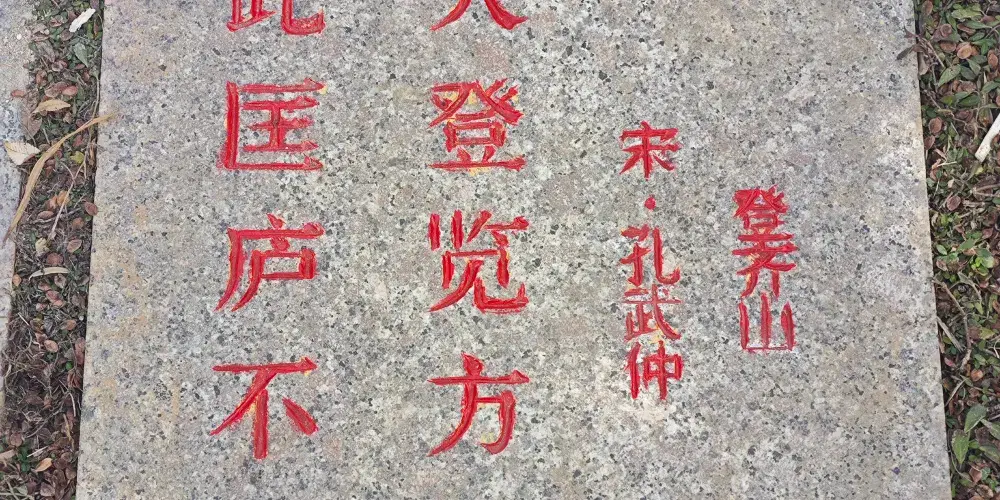 登齐山
宋·孔武仲
登览方
匡庐不